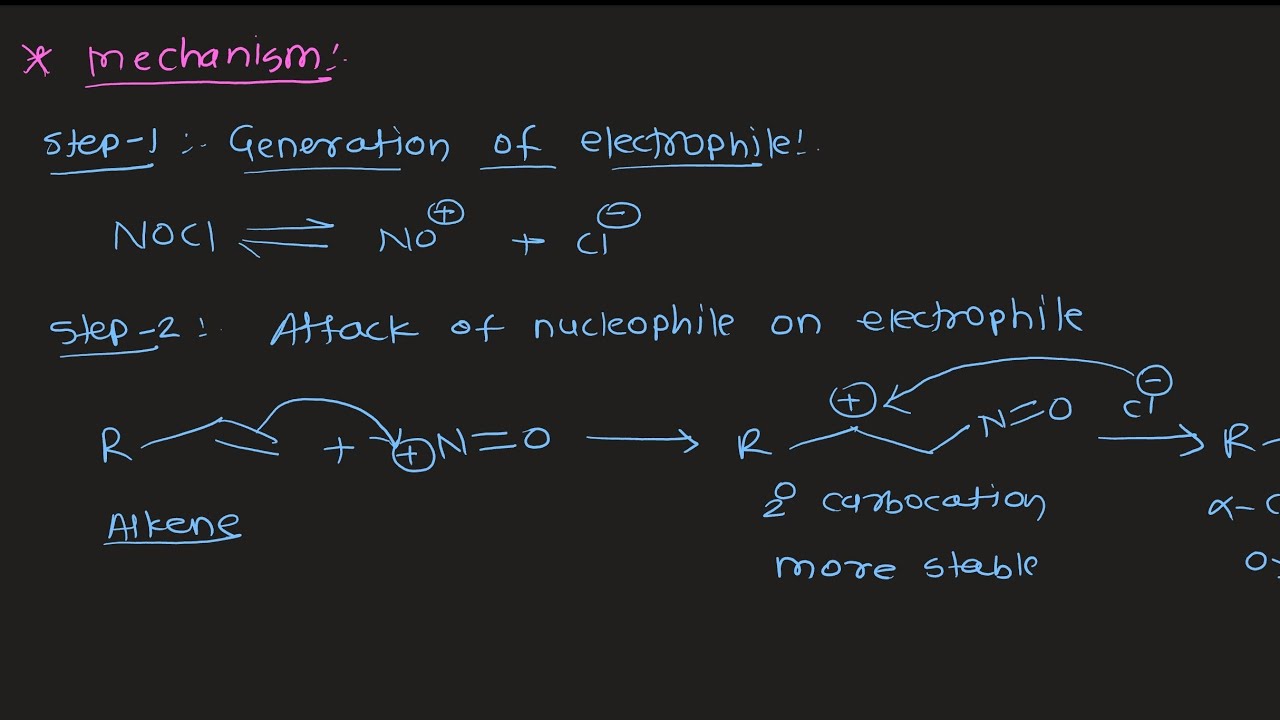 * mechanism:
step-1 :- Generation of electrophile:
NOCl ⇌ NO⊕ + Cl⊖
step-2 : Attack of nucleophile on electrophile
R + ⊕N=O → R ⊕ N=O Cl⊖ → R
Alkene
2° carbocation
more stable
α-